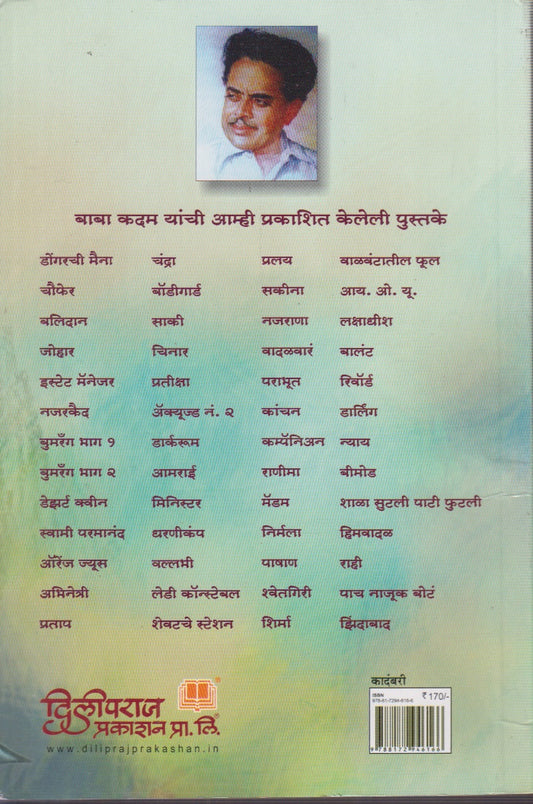 बाबा कदम यांची आम्ही प्रकाशित केलेली पुस्तके
डोंगरची मैना चंद्रा प्रलय वाळवंटातील फूल
चौफेर बॉडीगार्ड सकीना आय. ओ. यू.
बलिदान साकी नजराणा लक्षाधीश
जोहार चिनार वादळवारं बालंट
इस्टेट मॅनेजर प्रतीक्षा पराभूत रिवॉर्ड
नजरकैद ॲक्यूज्ड नं. २ कांचन डार्लिंग
बुमरँग भाग १ डार्करूम कम्पॅनिअन न्याय
बुमरँग भाग २ आमराई राणीमा बीमोड
डेझर्ट क्वीन मिनिस्टर मॅडम शाळा सुटली पाटी फुटली
स्वामी परमानंद धरणीकंप निर्मला हिमवादळ
ऑरेंज ज्यूस वल्लभी पाषाण राही
अभिनेत्री लेडी कॉन्स्टेबल श्वेतगिरी पाच नाजूक बोटं
प्रताप शेवटचे स्टेशन शिर्मा झिंदाबाद
कादंबरी
ISBN ₹ 170/-
978-81-7294-616-6
9 788172 946166
दिलीपराज
प्रकाशन प्रा. लि.
www.diliprajprakashan.in